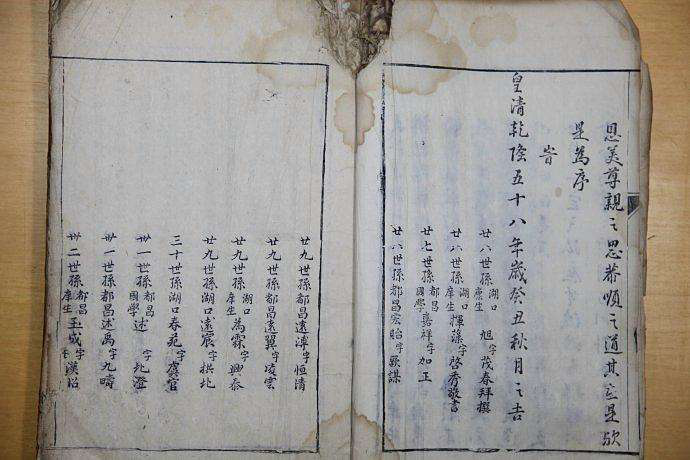 思美尊親之思恭順之道其在是歟
是為序
時
皇清乾隆五十八年歲癸丑秋月之吉
廿八世孫湖口廩生旭字茂春拜撰
廿八世孫湖口庠生字啓秀敬書
廿七世孫都昌國學嘉祥字如正
廿八世孫都昌宏貽字歌謀
廿九世孫都昌遠淳字恒清
廿九世孫都昌遠翼字凌雲
廿九世孫湖口庠生為霖字興泰
廿九世孫湖口遠宸字拱北
三十世孫湖口春苑字虞官
卅一世孫都昌國學述字允澄
卅一世孫都昌述禹字九疇
卅二世孫都昌庠生玉成字漢沼